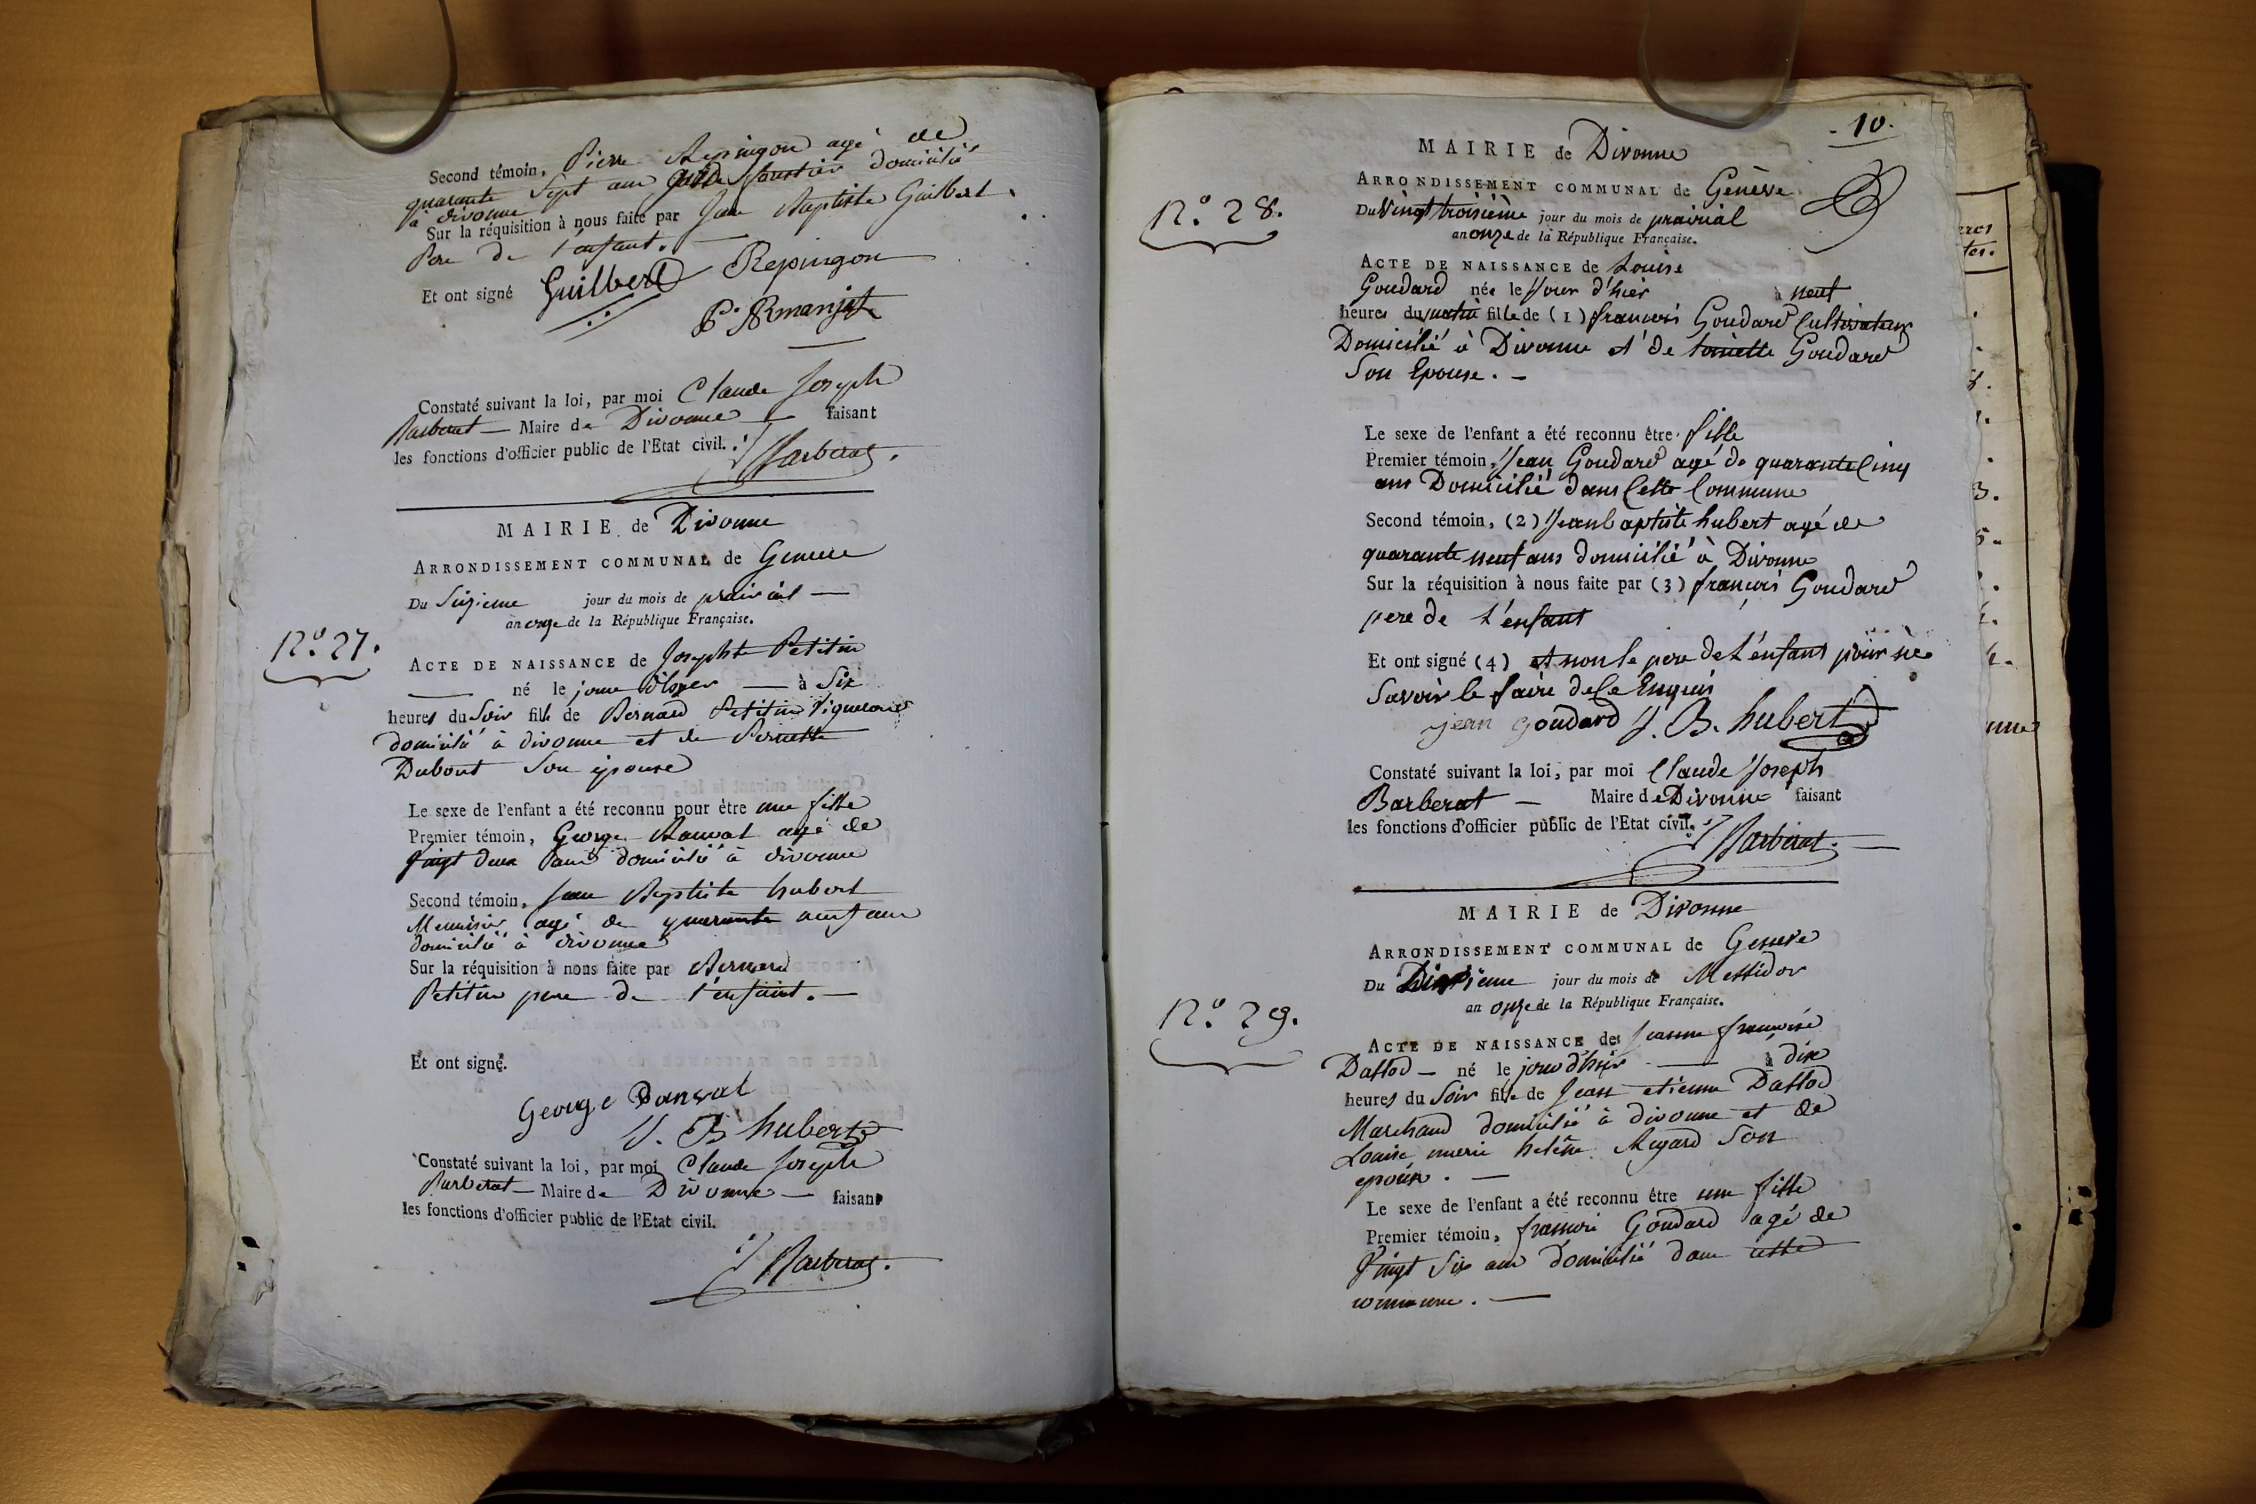 Second témoin, Pierre Repingon agé de
quarante Sept ans garde foustier domicilié
à divonne
Sur la réquisition à nous faite par Jean Baptiste Guilbert
Pere de l'enfant.
Et ont signé Guilbert Repingon
P. Armanjat
Constaté suivant la loi, par moi Claude Joseph
Barberat — Maire de Divonne — faisant
les fonctions d'officier public de l'Etat civil.
Barberat.
MAIRIE de Divonne
ARRONDISSEMENT COMMUNAL de Geneve
Du Sizieme jour du mois de prairial —
an onze de la République Française.
N.º 27.
ACTE DE NAISSANCE de Josephte Petitin
— né le jour d'hyer — à Six
heures du Soir fille de Bernard Petitin Vigneron
domicilié à divonne et de Pernette
Dubout Son épouse
Le sexe de l'enfant a été reconnu pour être une fille
Premier témoin, George Danvat agé de
Vingt deux ans domicilié à divonne
Second témoin, Jean Baptiste hubert
Menuisier agé de quarante neuf ans
domicilié à divonne
Sur la réquisition à nous faite par Bernard
Petitin pere de l'enfant. —
Et ont signé.
George Danvat
J. B hubert
Constaté suivant la loi, par moi Claude Joseph
Barberat — Maire de Divonne — faisant
les fonctions d'officier public de l'Etat civil.
Barberat.
- 10.
MAIRIE de Divonne
ARRONDISSEMENT COMMUNAL de Genève
N.º 28.
Du Vingt troisième jour du mois de prairial
an onze de la République Française.
ACTE DE NAISSANCE de Louise
Goudard née le Jour d'hier à neuf
heures du matin fille de (1) françois Goudard Cultivateur
Domicilié à Divonne et de toinette Goudard
Son Epouse. —
Le sexe de l'enfant a été reconnu être fille
Premier témoin, Jean Goudard agé de quarante Cinq
ans Domicilié dans Cette Commune
Second témoin, (2) Jean baptiste hubert agé de
quarante neuf ans domicilié à Divonne
Sur la réquisition à nous faite par (3) françois Goudard
pere de L'enfant
Et ont signé (4) et non le pere de L'enfant pour ne
Savoir le faire de Ce Enquis
jean goudard J. B. hubert
Constaté suivant la loi, par moi Claude Joseph
Barberat — Maire de Divonne faisant
les fonctions d'officier public de l'Etat civil.
Barberat.
MAIRIE de Divonne
ARRONDISSEMENT COMMUNAL de Geneve
Du jour du mois de Messidor
an onze de la République Française.
N.º 29.
ACTE DE NAISSANCE de Jeanne françoise
Daflod — né le jour d'hier — à dix
heures du Soir fille de Jean etienne Daflod
Marchand domicilié à divonne et de
Louise marie helène Regard Son
epouse. —
Le sexe de l'enfant a été reconnu être une fille
Premier témoin, francois Goudard agé de
Vingt Six ans domicilié dans cette
commune. —